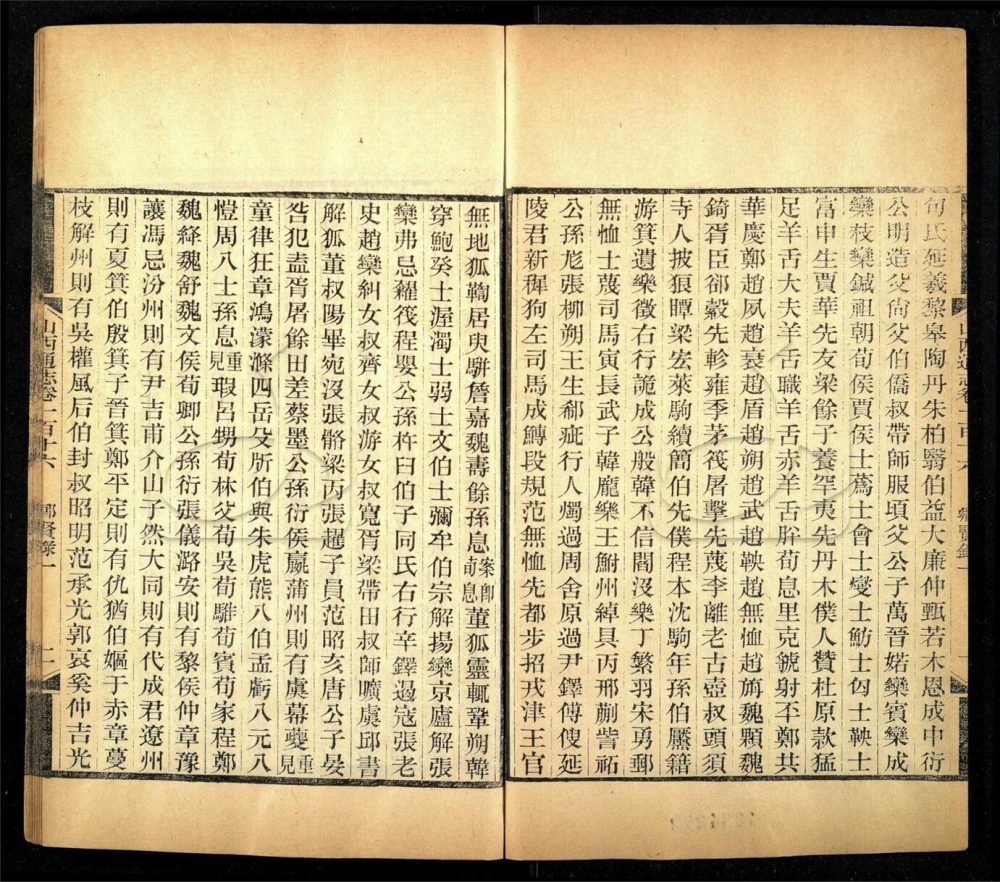 句氏延羲黎皋陶丹朱柏翳伯益大廉仲甄若木恩成中衍
公明造父尙父伯僑叔帶師服頃父公子萬晉婼欒賓欒成
欒枝欒鍼祖朝荀侯賈侯士蔿士會士燮士魴士匄士鞅士
富申生賈華先友梁餘子養罕夷先丹木僕人贊杜原款猛
足羊舌大夫羊舌職羊舌赤羊舌肸荀息里克虢射丕鄭共
華慶鄭趙夙趙衰趙盾趙朔趙武趙鞅趙無恤趙旃魏顆魏
錡胥臣郤縠先軫雍季茅筏屠擊先蔑李離老古壺叔頭須
寺人披狼瞫梁宏萊駒續簡伯先僕程本沈駒年孫伯黶籍
游箕遺樂徵右行詭成公般韓不信閻沒樂丁繁羽宋勇郵
無恤士蔑司馬寅長武子韓龎樂王鮒州綽具丙邢蒯訾祏
公孫尨張柳朔王生郗疵行人燭過周舍原過尹鐸傅傁延
陵君新稺狗左司馬成鱄段規范無恤先都步招戎津王官
無地狐鞫居臾駢詹嘉魏壽餘孫息案卽荀息董狐靈輒鞏朔韓
穿鮑癸士渥濁士弱士文伯士彌牟伯宗解揚欒京廬解張
欒弗忌羅筏程嬰公孫杵臼伯子同氏右行辛鐸遏寇張老
史趙欒糾女叔齊女叔游女叔寬胥梁帶田叔師曠虞邱書
解狐董叔陽畢宛沒張骼梁丙張趯子員范昭亥唐公子晏
咎犯盍胥屠餘田差蔡墨公孫衍侯嬴蒲州則有虞幕夔重見
童律狂章鴻濛滌四岳殳斨伯與朱虎熊八伯孟虧八元八
愷周八士孫息重見瑕呂甥荀林父荀吳荀騅荀賓荀家程鄭
魏絳魏舒魏文侯荀卿公孫衍張儀潞安則有黎侯仲章豫
讓馮忌汾州則有尹吉甫介山子然大同則有代成君遼州
則有夏箕伯殷箕子晉箕鄭平定則有仇猶伯嫗于赤章蔓
枝解州則有吳權風后伯封叔昭明范承光郭哀奚仲吉光
山西通志卷一百十六
鄕賢錄一
二